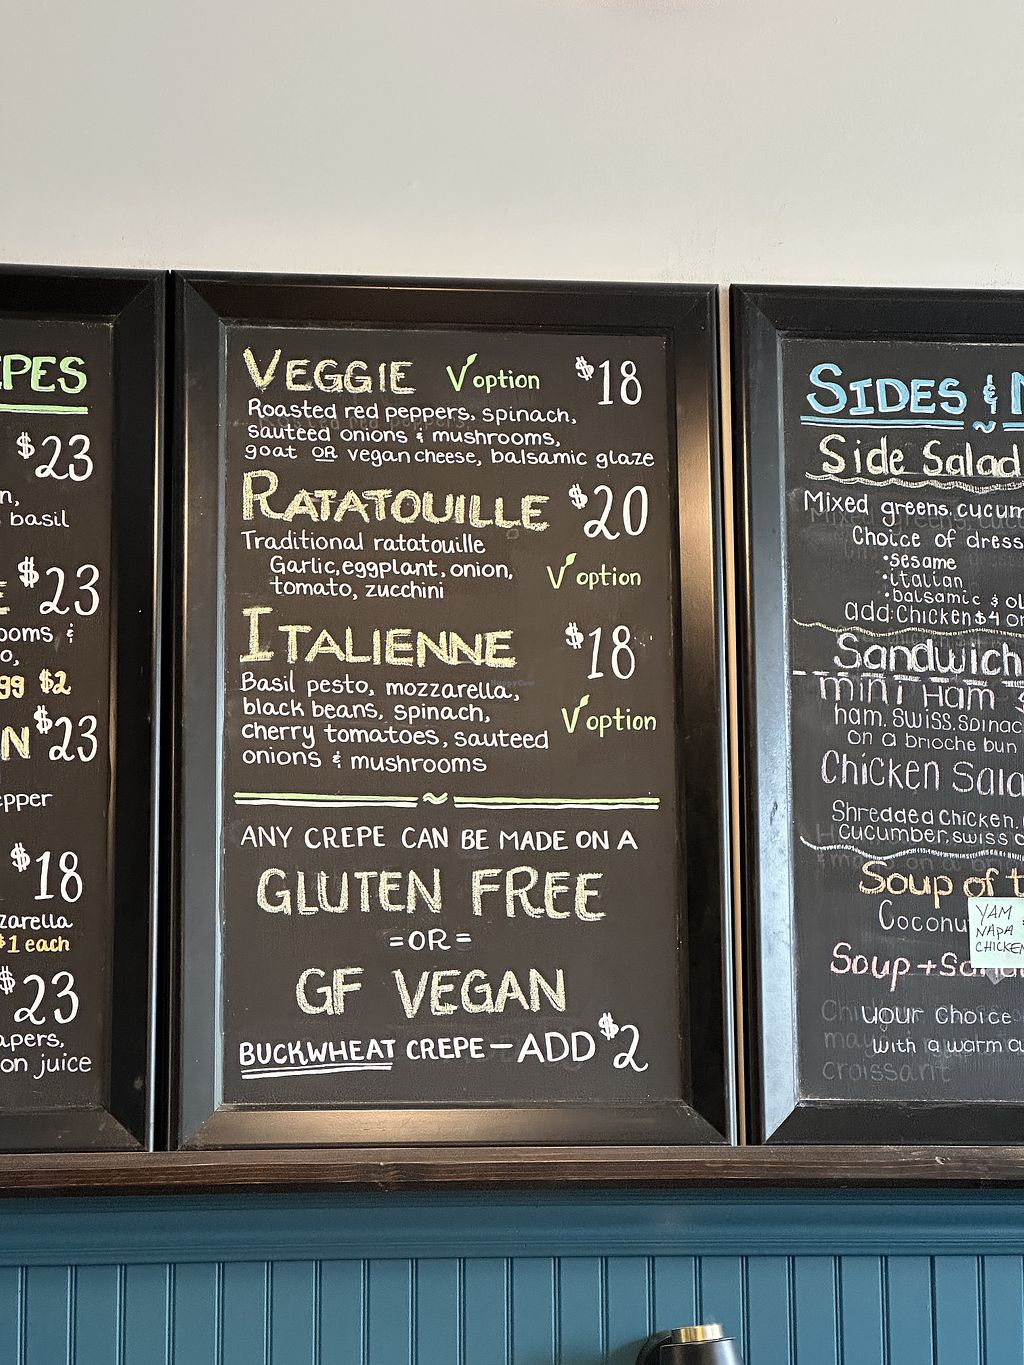 EPES
$23
n,
basil
E $23
ooms &
o,
gg $2
N $23
epper
$18
zarella
$1 each
$23
apers,
on juice
VEGGIE V option $18
Roasted red peppers, spinach,
sauteed onions & mushrooms,
goat OR vegan cheese, balsamic glaze
RATATOUILLE $20
Traditional ratatouille
Garlic, eggplant, onion,
tomato, zucchini
V option
ITALIENNE $18
Basil pesto, mozzarella,
black beans, spinach,
cherry tomatoes, sauteed
onions & mushrooms
V option
ANY CREPE CAN BE MADE ON A
GLUTEN FREE
=OR=
GF VEGAN
BUCKWHEAT CREPE - ADD $2
SIDES &
Side Salad
Mixed greens, cucum
Choice of dress
•sesame
•italian
•balsamic & ol
add: Chicken $4 or
Sandwich
mini Ham $
ham, swiss, spinac
on a brioche bun
Chicken Sala
Shredded Chicken,
cucumber, swiss
Soup of t
Coconu
YAM
NAPA
CHICKEN
Soup + San
your choice
with a warm
croissant